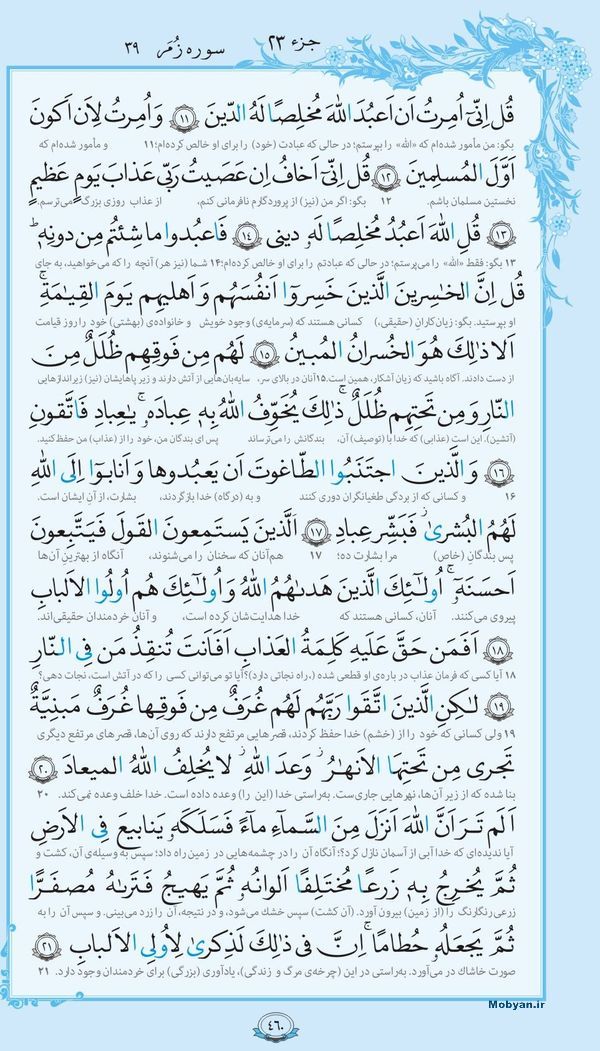 جزء ۲۳
سوره زُمَر
۳۹
قُل اِنّى اُمِرتُ اَن اَعبُدَ اللهَ مُخلِصًا لَهُ الدّينَ ﴿۱۱﴾ وَ اُمِرتُ لِاَن اَكونَ
بگو: من مأمور شده‌ام که «الله» را بپرستم؛ در حالی که عبادت (خود) را برای او خالص کرده‌ام؛ ۱۱ و مأمور شده‌ام که
اَوَّلَ المُسلِمينَ ﴿۱۲﴾ قُل اِنّى اَخافُ اِن عَصَيتُ رَبّى عَذابَ يَومٍ عَظيمٍ
نخستین مسلمان باشم. ۱۲ بگو: اگر من (نیز) از پروردگارم نافرمانی کنم، از عذاب روزی بزرگ می‌ترسم.
﴿۱۳﴾ قُلِ اللهَ اَعبُدُ مُخلِصًا لَهُ دينى ﴿۱۴﴾ فَاعبُدوا ما شِئتُم مِن دونِه ۗ
۱۳ بگو: فقط «الله» را می‌پرستم؛ در حالی که عبادتم را برای او خالص کرده‌ام؛ ۱۴ شما (نیز هر) آنچه را که می‌خواهید، به جای
قُل اِنَّ الخاسِرينَ الَّذينَ خَسِروا اَنفُسَهُم وَ اَهليهِم يَومَ القِيامَةِ ۗ
او بپرستید. بگو: زیان‌کاران (حقیقی،) کسانی هستند که (سرمایه‌ی) وجود خویش و خانواده‌ی (بهشتی) خود را روز قیامت
اَلا ذٰلِكَ هُوَ الخُسرانُ المُبينُ ﴿۱۵﴾ لَهُم مِن فَوقِهِم ظُلَلٌ مِنَ
از دست دادند. آگاه باشید که زیان آشکار، همین است. ۱۵ آنان در بالای سر، سایه‌بان‌هایی از آتش دارند و زیر پاهایشان (نیز) زیراندازهایی
النّارِ وَ مِن تَحتِهِم ظُلَلٌ ۚ ذٰلِكَ يُخَوِّفُ اللهُ بِه عِبادَه ۚ يا عِبادِ فَاتَّقونِ
(آتشین). این است (عذابی) که خدا با (توصیف) آن، بندگانش را می‌ترساند پس ای بندگان من، خود را از (عذاب) من حفظ کنید.
﴿۱۶﴾ وَ الَّذينَ اجتَنَبُوا الطّاغوتَ اَن يَعبُدوها وَ اَنابوا اِلَى اللهِ
۱۶ و کسانی که از بردگی طغیانگران دوری کنند و به (درگاه) خدا بازگردند، بشارت، از آنِ ایشان است.
لَهُمُ البُشرىٰ ۚ فَبَشِّر عِبادِ ﴿۱۷﴾ اَلَّذينَ يَستَمِعونَ القَولَ فَيَتَّبِعونَ
پس بندگانِ (خاص) مرا بشارت ده؛ ۱۷ هم‌آنان که سخنان را می‌شنوند، آنگاه از بهترینِ آن‌ها
اَحسَنَه ۚ اُولٰئِكَ الَّذينَ هَداهُمُ اللهُ وَ اُولٰئِكَ هُم اُولُوا الاَلبابِ
پیروی می‌کنند. آنان، کسانی هستند که خدا هدایت‌شان کرده است، و آنان خردمندان حقیقی‌اند.
﴿۱۸﴾ اَفَمَن حَقَّ عَلَيهِ كَلِمَةُ العَذابِ اَفَاَنتَ تُنقِذُ مَن فِى النّارِ
۱۸ آیا کسی که فرمان عذاب در باره‌ی او قطعی شده (، راه نجاتی دارد)؟ آیا تو می‌توانی کسی را که در آتش است، نجات دهی؟
﴿۱۹﴾ لٰكِنِ الَّذينَ اتَّقَوا رَبَّهُم لَهُم غُرَفٌ مِن فَوقِها غُرَفٌ مَبنِيَّةٌ
۱۹ ولی کسانی که خود را از (خشم) خدا حفظ کردند، قصرهایی مرتفع دارند که روی آن‌ها، قصرهای مرتفع دیگری
تَجرى مِن تَحتِهَا الاَنهٰرُ ۖ وَعدَ اللهِ ۖ لا يُخلِفُ اللهُ الميعادَ ﴿۲۰﴾
بنا شده که از زیر آن‌ها، نهرهایی جاری‌ست. به‌راستی خدا (این را) وعده داده است. خدا خلف وعده نمی‌کند. ۲۰
اَلَم تَرَ اَنَّ اللهَ اَنزَلَ مِنَ السَّماءِ ماءً فَسَلَكَه يَنابيعَ فِى الاَرضِ
آیا ندیده‌ای که خدا آبی از آسمان نازل کرد؟؛ آنگاه آن را در چشمه‌هایی در زمین راه داد؛ سپس به وسیله‌ی آن، کشت و
ثُمَّ يُخرِجُ بِه زَرعًا مُختَلِفًا اَلوانُه ثُمَّ يَهيجُ فَتَراهُ مُصفَرًّا
زرعی رنگارنگ را (از زمین) بیرون آورد. (آن کشت) سپس خشک می‌شود، و در نتیجه، آن را زرد می‌بینی. و سپس آن را به
ثُمَّ يَجعَلُه حُطامًا ۚ اِنَّ فى ذٰلِكَ لَذِكرىٰ لِاُولِى الاَلبابِ ﴿۲۱﴾
صورت خاشاک در می‌آورد. به‌راستی در این (چرخه‌ی مرگ و زندگی)، یادآوری (بزرگی) برای خردمندان وجود دارد. ۲۱
Mobyan.ir
۴۶۰